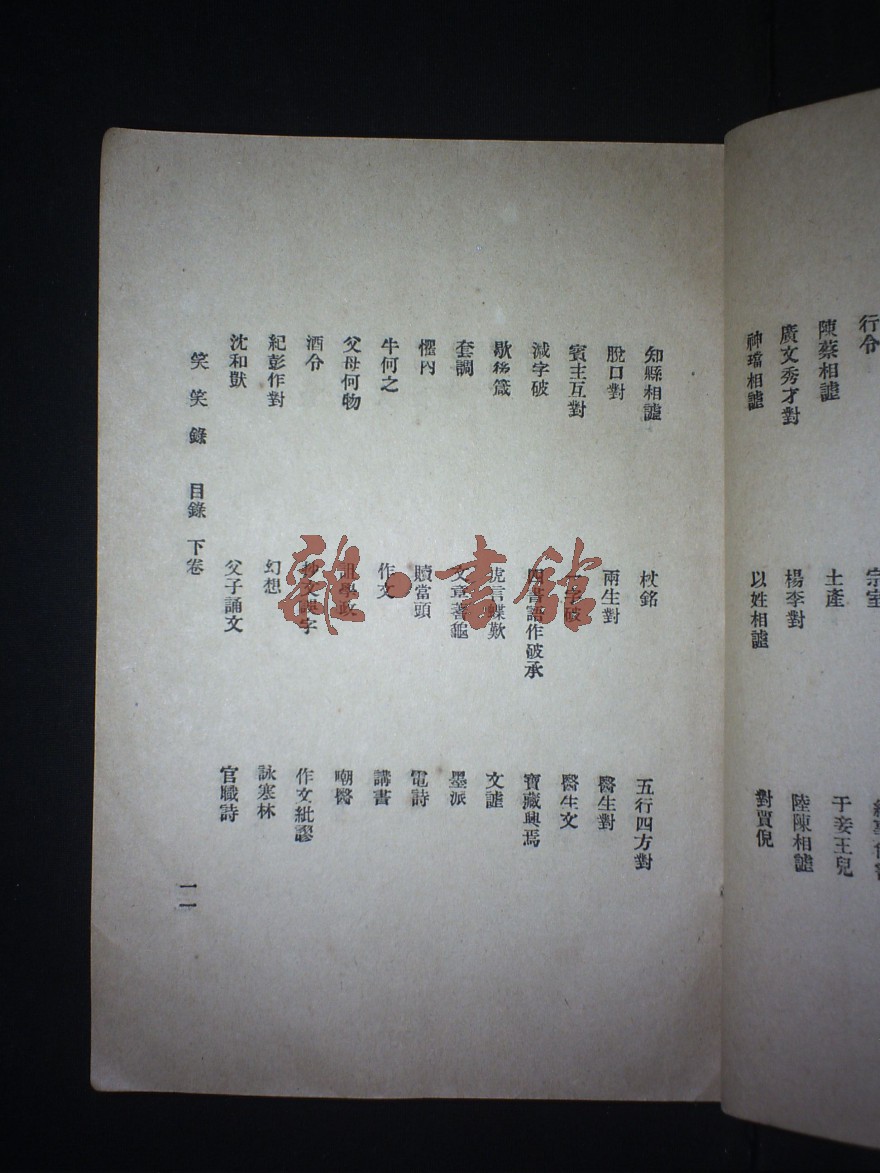 行令
陳蔡相謔
廣文秀才對
神璫相謔
宗室
土產
楊李對
以姓相謔
于妾王兒
陸陳相謔
對賈倪
知縣相謔
脫口對
賓主互對
減字破
歇後箴
套調
懼內
牛何之
父母何物
酒令
紀彭作對
沈和獸
杖銘
兩生對
字破
四書語作破承
虎言蝶歎
文章著龜
贖當頭
作文
學政
抄文誤字
幻想
父子誦文
五行四方對
醫生對
醫生文
寶藏興焉
文謔
墨派
電詩
講書
嘲醫
作文紕謬
詠寒林
官職詩
笑笑錄 目錄 下卷
一一
雜·書館